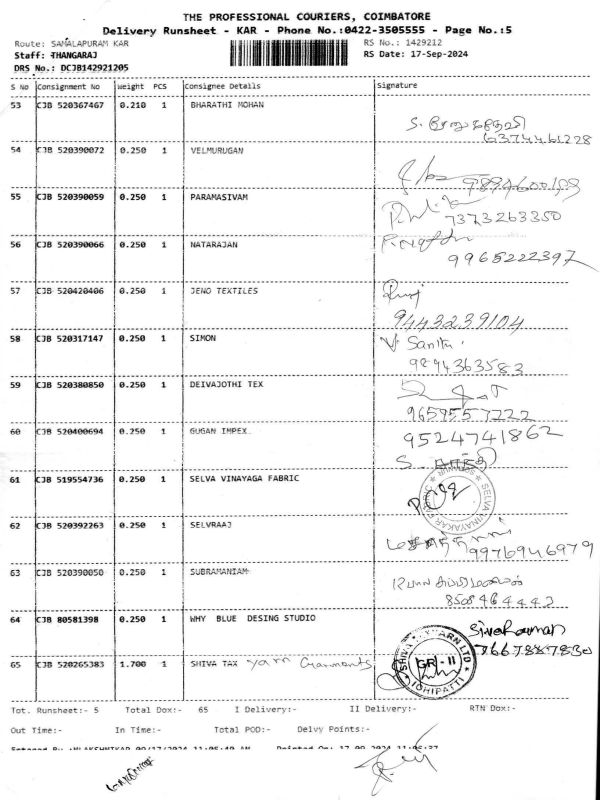 THE PROFESSIONAL COURIERS, COIMBATORE
Delivery Runsheet - KAR - Phone No.:0422-3505555 - Page No.:5
Route: SAMALAPURAM KAR
RS No.: 1429212
Staff: THANGARAJ
RS Date: 17-Sep-2024
DRS No.: DCJB142921205
S No Consignment No Weight PCS Consignee Details Signature
53 CJB 520367467 0.210 1 BHARATHI MOHAN
6374461228
54 CJB 520390072 0.250 1 VELMURUGAN
55 CJB 520390059 0.250 1 PARAMASIVAM
7373263350
56 CJB 520390066 0.250 1 NATARAJAN
9965222397
57 CJB 520420406 0.250 1 JENO TEXTILES
9443239104
58 CJB 520317147 0.250 1 SIMON
9894363583
59 CJB 520380850 0.250 1 DEIVAJOTHI TEX
9659557222
60 CJB 520400694 0.250 1 GUGAN IMPEX
9524741862
61 CJB 519554736 0.250 1 SELVA VINAYAGA FABRIC
62 CJB 520392263 0.250 1 SELVRAAJ
9976946979
63 CJB 520390050 0.250 1 SUBRAMANIAM
8508464442
64 CJB 80581398 0.250 1 WHY BLUE DESING STUDIO
65 CJB 520265383 1.700 1 SHIVA TAX yarn Garments
GR-II
Tot. Runsheet:- 5 Total Dox:- 65 I Delivery:- II Delivery:- RTN Dox:-
Out Time:- In Time:- Total POD:- Delvy Points:-